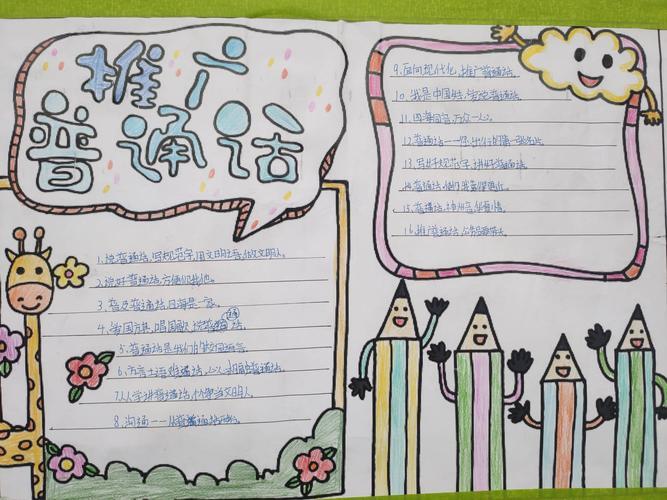 推广
普通话
1.说普通话,写规范字,用文明语,做文明人。
2.说好普通话,方便你我他。
3.普及普通话,四海是一家。
4.爱国旗,唱国歌,说普通话。
5.普通话是我们的校园语言。
6.方言土语难通话,心心相印普通话。
7.人人学讲普通话,个个争当文明人。
8.沟通——从普通话开始。
9.面向现代化,推广普通话。
10.我是中国娃,爱说普通话。
11.四海同音,万众一心。
12.普通话——你
13.写好规范字,讲好普通话。
14.普通话,
15.普通话,神州音,华夏情。
16.推广普通话,